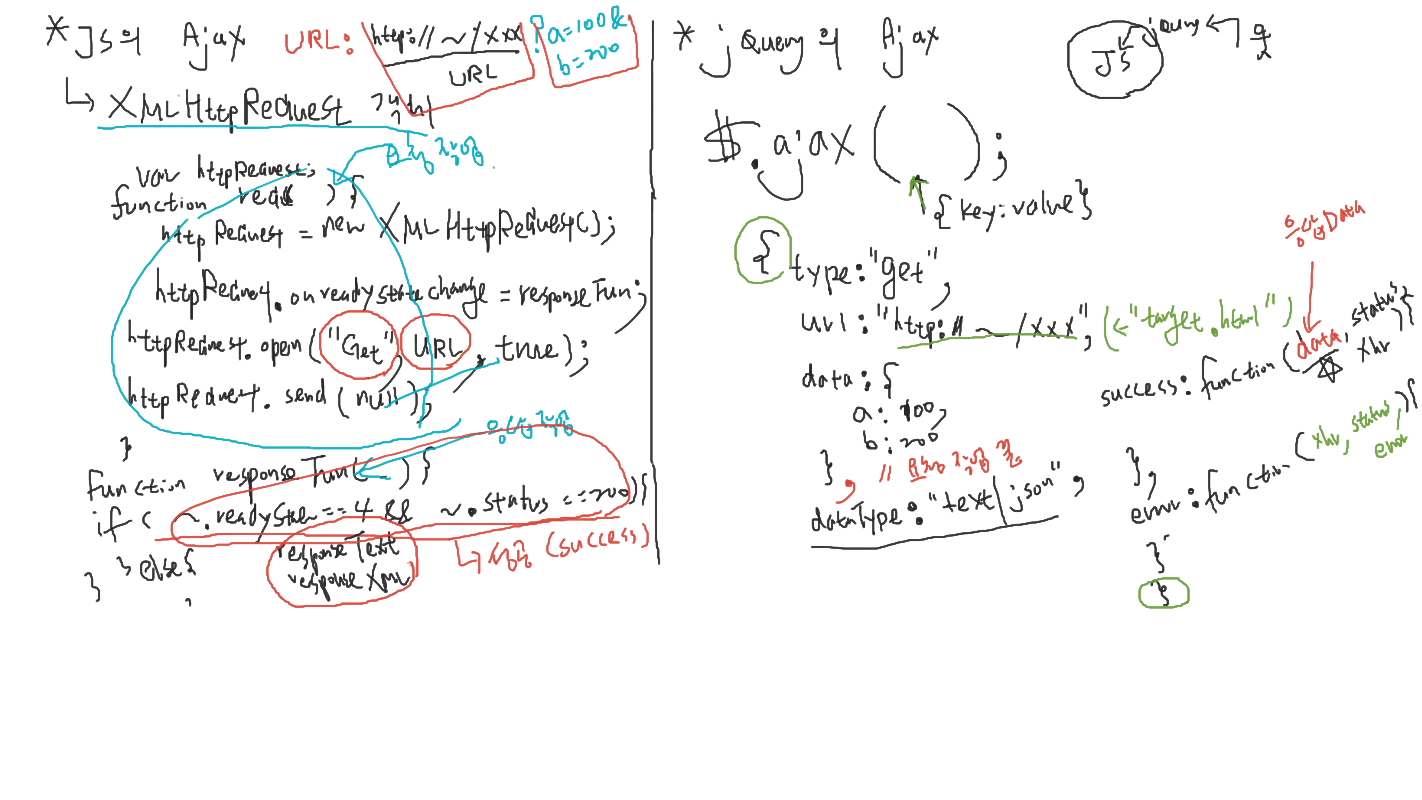 *JS의 Ajax URL: http:// ~ /xxx ? a=100&
b=200
URL
↳ XMLHttpRequest 객체
요청 처리용
var httpRequest;
function read( ) {
httpRequest = new XMLHttpRequest();
httpRequest.onreadystatechange = responseFun;
httpRequest.open("Get", URL, true);
httpRequest.send(null);
}
응답 처리용
function responseFun( ) {
if ( ~.readyState==4 && ~.status==200){
responseText
responseXML
↳ 성공 (success)
} else{
}
* jQuery의 Ajax
JS jQuery
$.ajax( );
{key:value}
{
type:"get",
url:"http:// ~ /xxx", (←"target.html")
data:{
a:100,
b:200
}, // 요청
dataType:"text/json",
응답Data
success: function(data, status,
xhr){
},
error: function(xhr, status,
error){
}
}